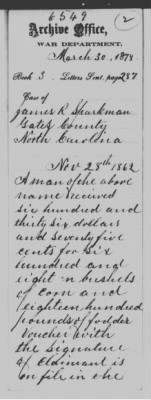 6549
(2
Archive Office,
WAR DEPARTMENT,
March 30, 1878
Book 3. Letters Sent, page 237
Case of
James R Sparkman
Gates County
North Carolina
Nov 28th 1862
A man of the above
name received
six hundred and
thirty six dollars
and seventy five
cents for six
hundred and
eight -n bushels
of corn and
eighteen hundred
pounds of fodder
Voucher with
the signature
of Claimant is
on file in the